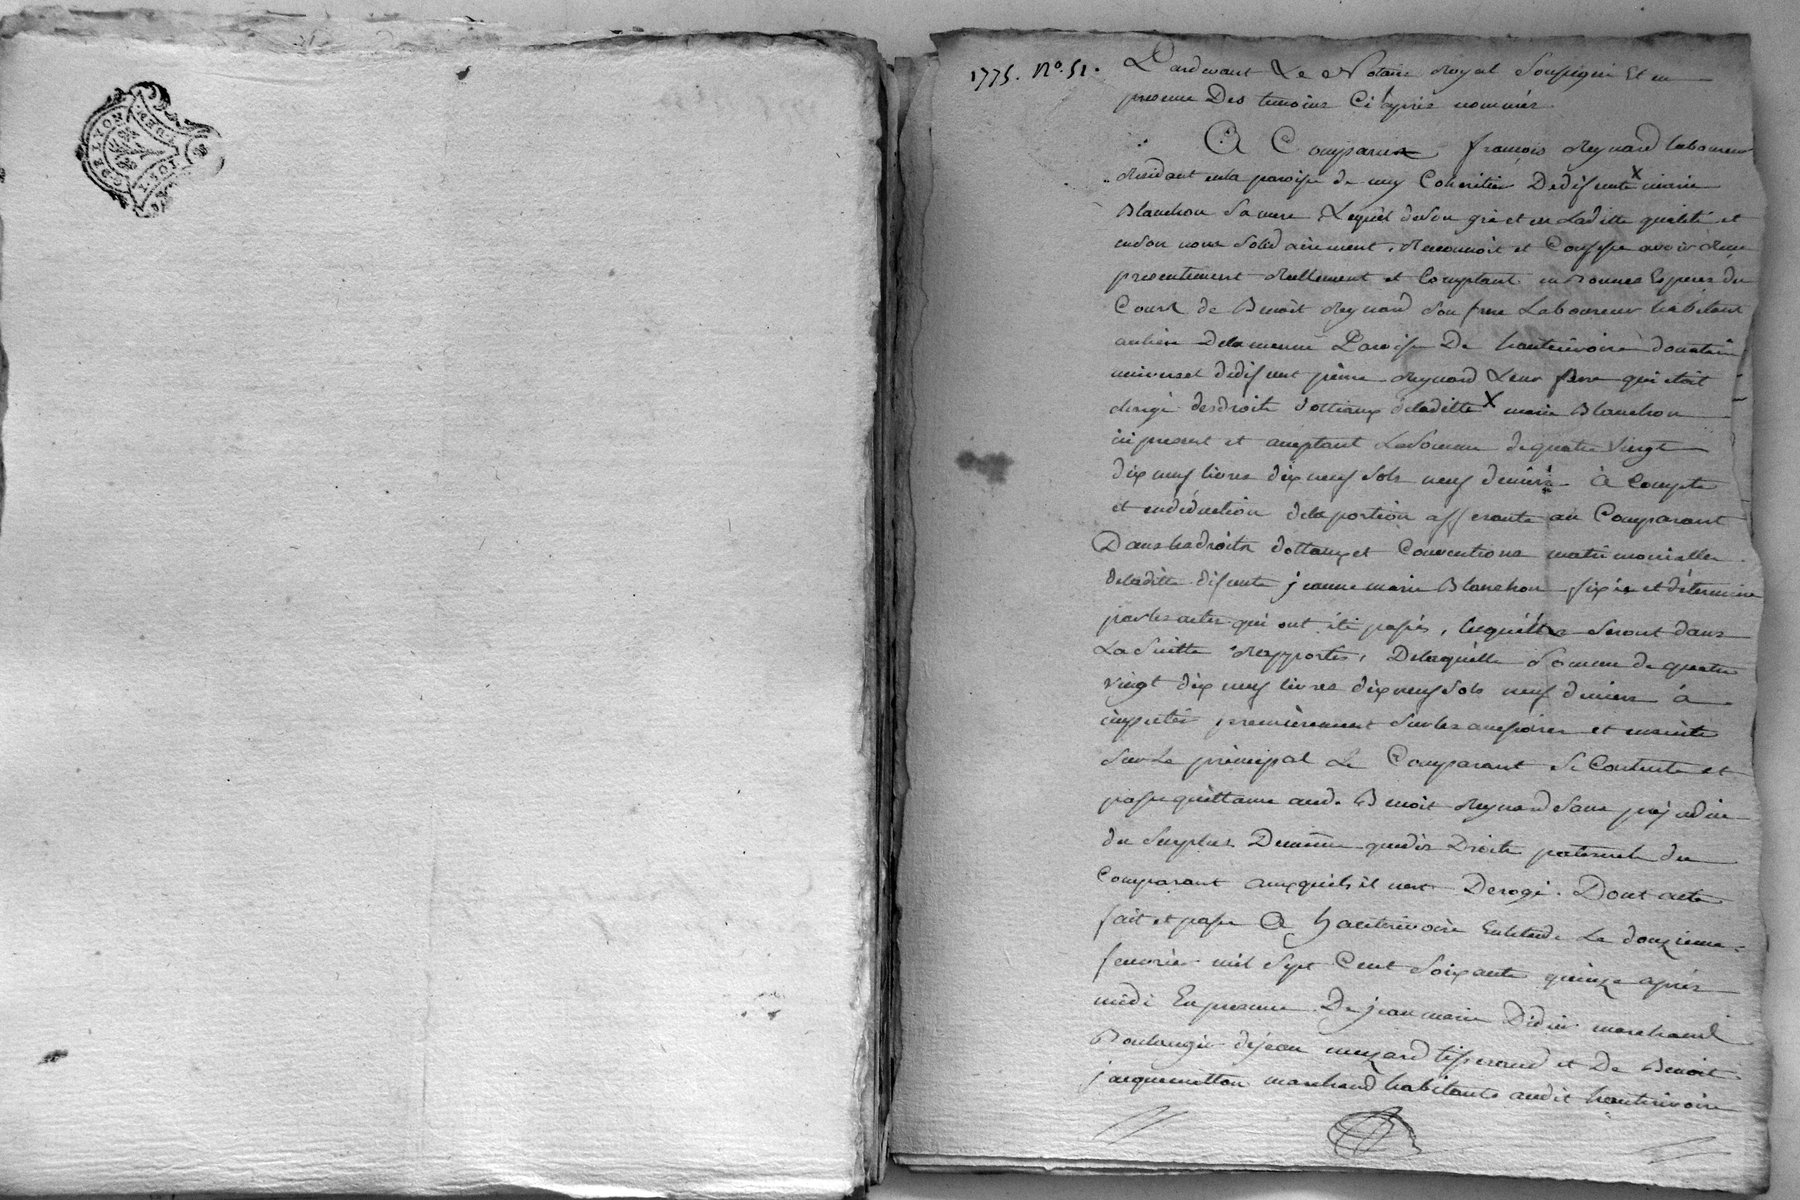 GR. LYON
DEUX SOLS
1775. N.º 51.
Pardevant Le Notaire Royal Soussigné Et en
presence Des temoins Ci après nommés
A Comparu françois Reynard laboureur
Residant en la paroisse de Coheritier De deffunte X marie
Blanchon Sa mere Lequel de Son gré et en Ladite qualité et
en Son nom Solidairement, Reconnoit et Confesse avoir Reçu
presentement Réellement et Comptant en Bonnes Espèces du
Cours de Benoit Reynard Son frere Laboureur habitant
au lieu de la meme Paroisse De hauterivoire donataire
universel de deffunt pierre Reynard Leur pere qui était
chargé des droits dottaux de ladite X marie Blanchon
ici present et acceptant La Somme de quatre Vingt
dix neuf livres dix neuf Sols neuf deniers À Compte
et en déduction de la portion afferante au Comparant
Dans les droits dottaux et Conventions matrimonialles
de ladite deffunte jeanne marie Blanchon fixés et déterminés
par les actes qui ont été passés, lesquels Seront dans
La Suitte Rapportés, De laquelle Somme de quatre
vingt dix neuf livres dix neuf Sols neuf deniers à
imputer premièrement Sur les accessoires et ensuite
Sur Le principal Le Comparant Se Contente et
passe quittance aud. Benoit Reynard Sans préjudice
du Surplus De même que des Droits paternels du
Comparant auxquels il n'est Derogé. Dont acte
fait et passé A hauterivoire En l'Etude Le douzieme
fevrier mil Sept Cent Soixante quinze après
midi En presence De jean marie Didier marchand
Boulanger de jean muzard tisserand et De Benoit
jacquemetton marchand habitants audit hauterivoire